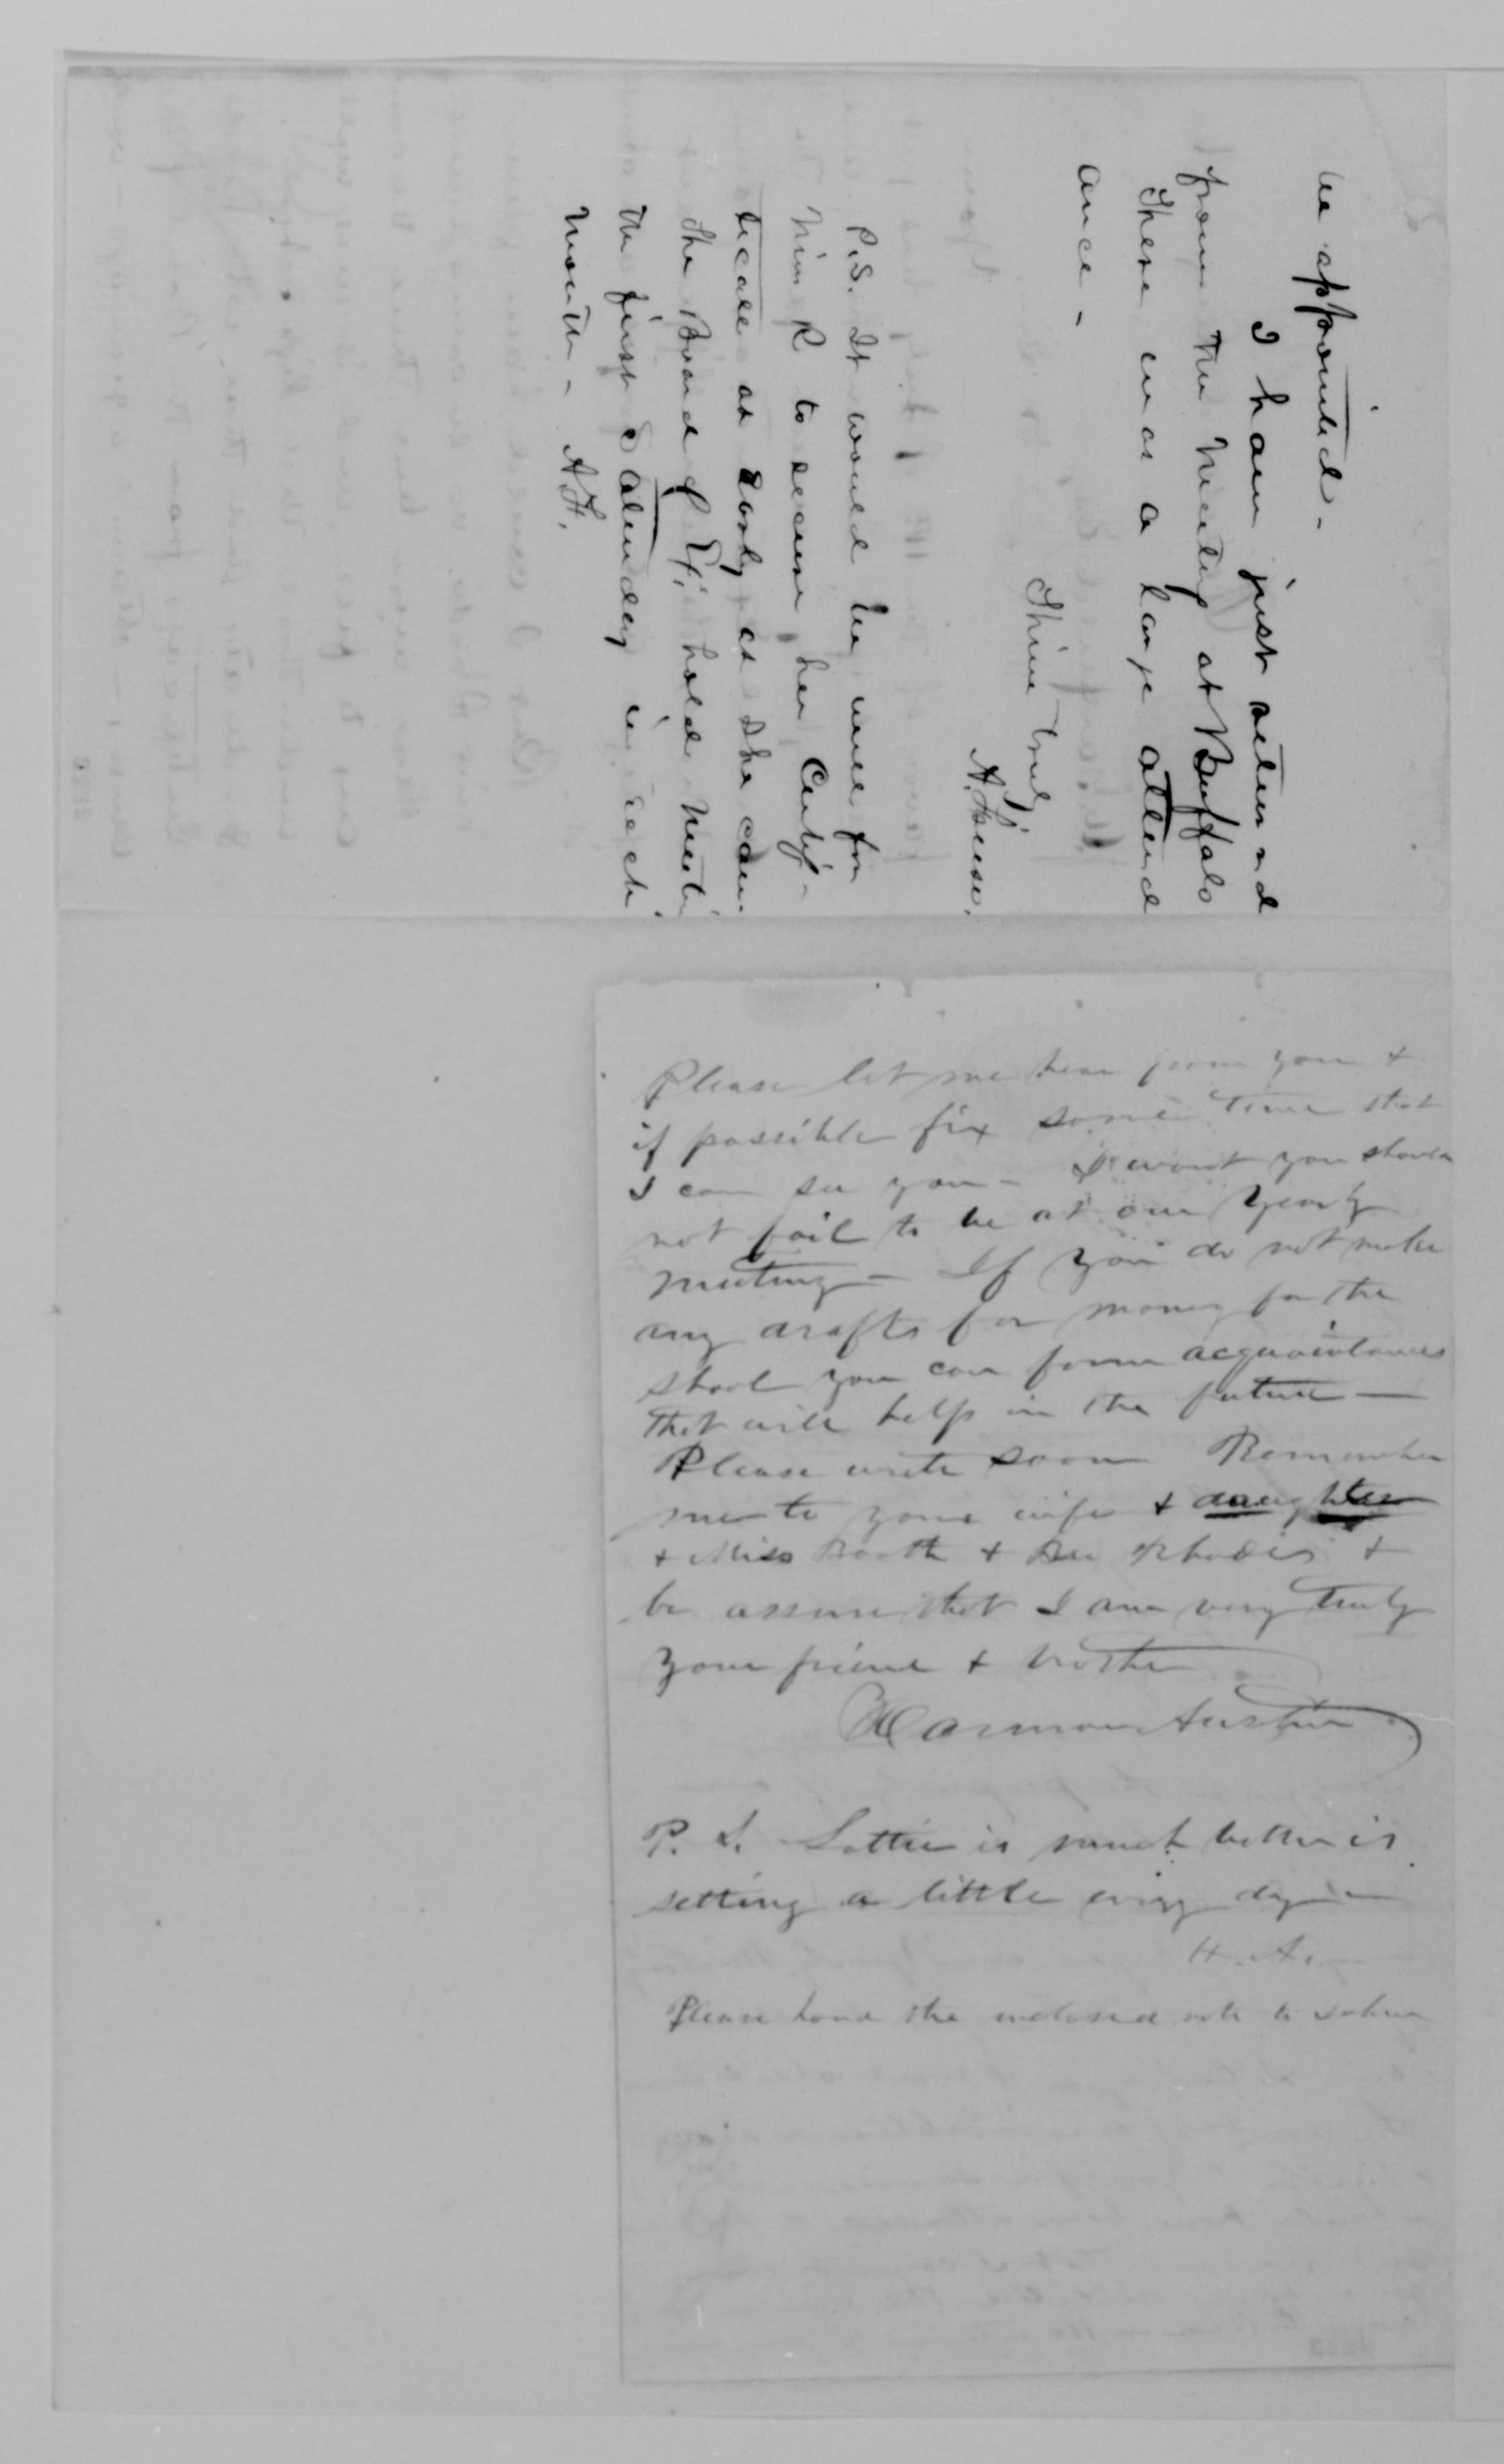 be appointed.
I have just returnd
from the Meeting at Buffalo
There was a large attend
ance -
Thine truly
A.
P.S. It would be well for
Miss R to secure her Certif-
icate as early as she can.
The Board of Ex. hold meeti
the first Saturday in each
month - A.F.
Please let me hear from you +
if possible fix some time that
I can see you - I want you should
not fail to be at our Yearly
meeting - If you do not make
any drafts for money for the
shool you can form acquaintances
that will help in the future -
Please write soon Remember
me to your wife + daughter
+ Miss Booth + Bro Rhodes +
be assure that I am very truly
your friend + brother
Harmon Austin
P. S. Lottie is much better is
setting a little every day -
H. A.
Please hand the inclosed note to